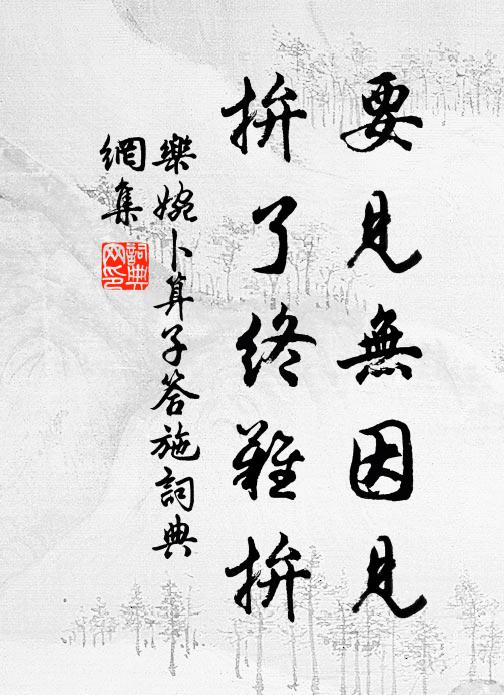 要見無因見
拚了終難拚
樂婉卜算子答施詞典
網集
詞典
网印